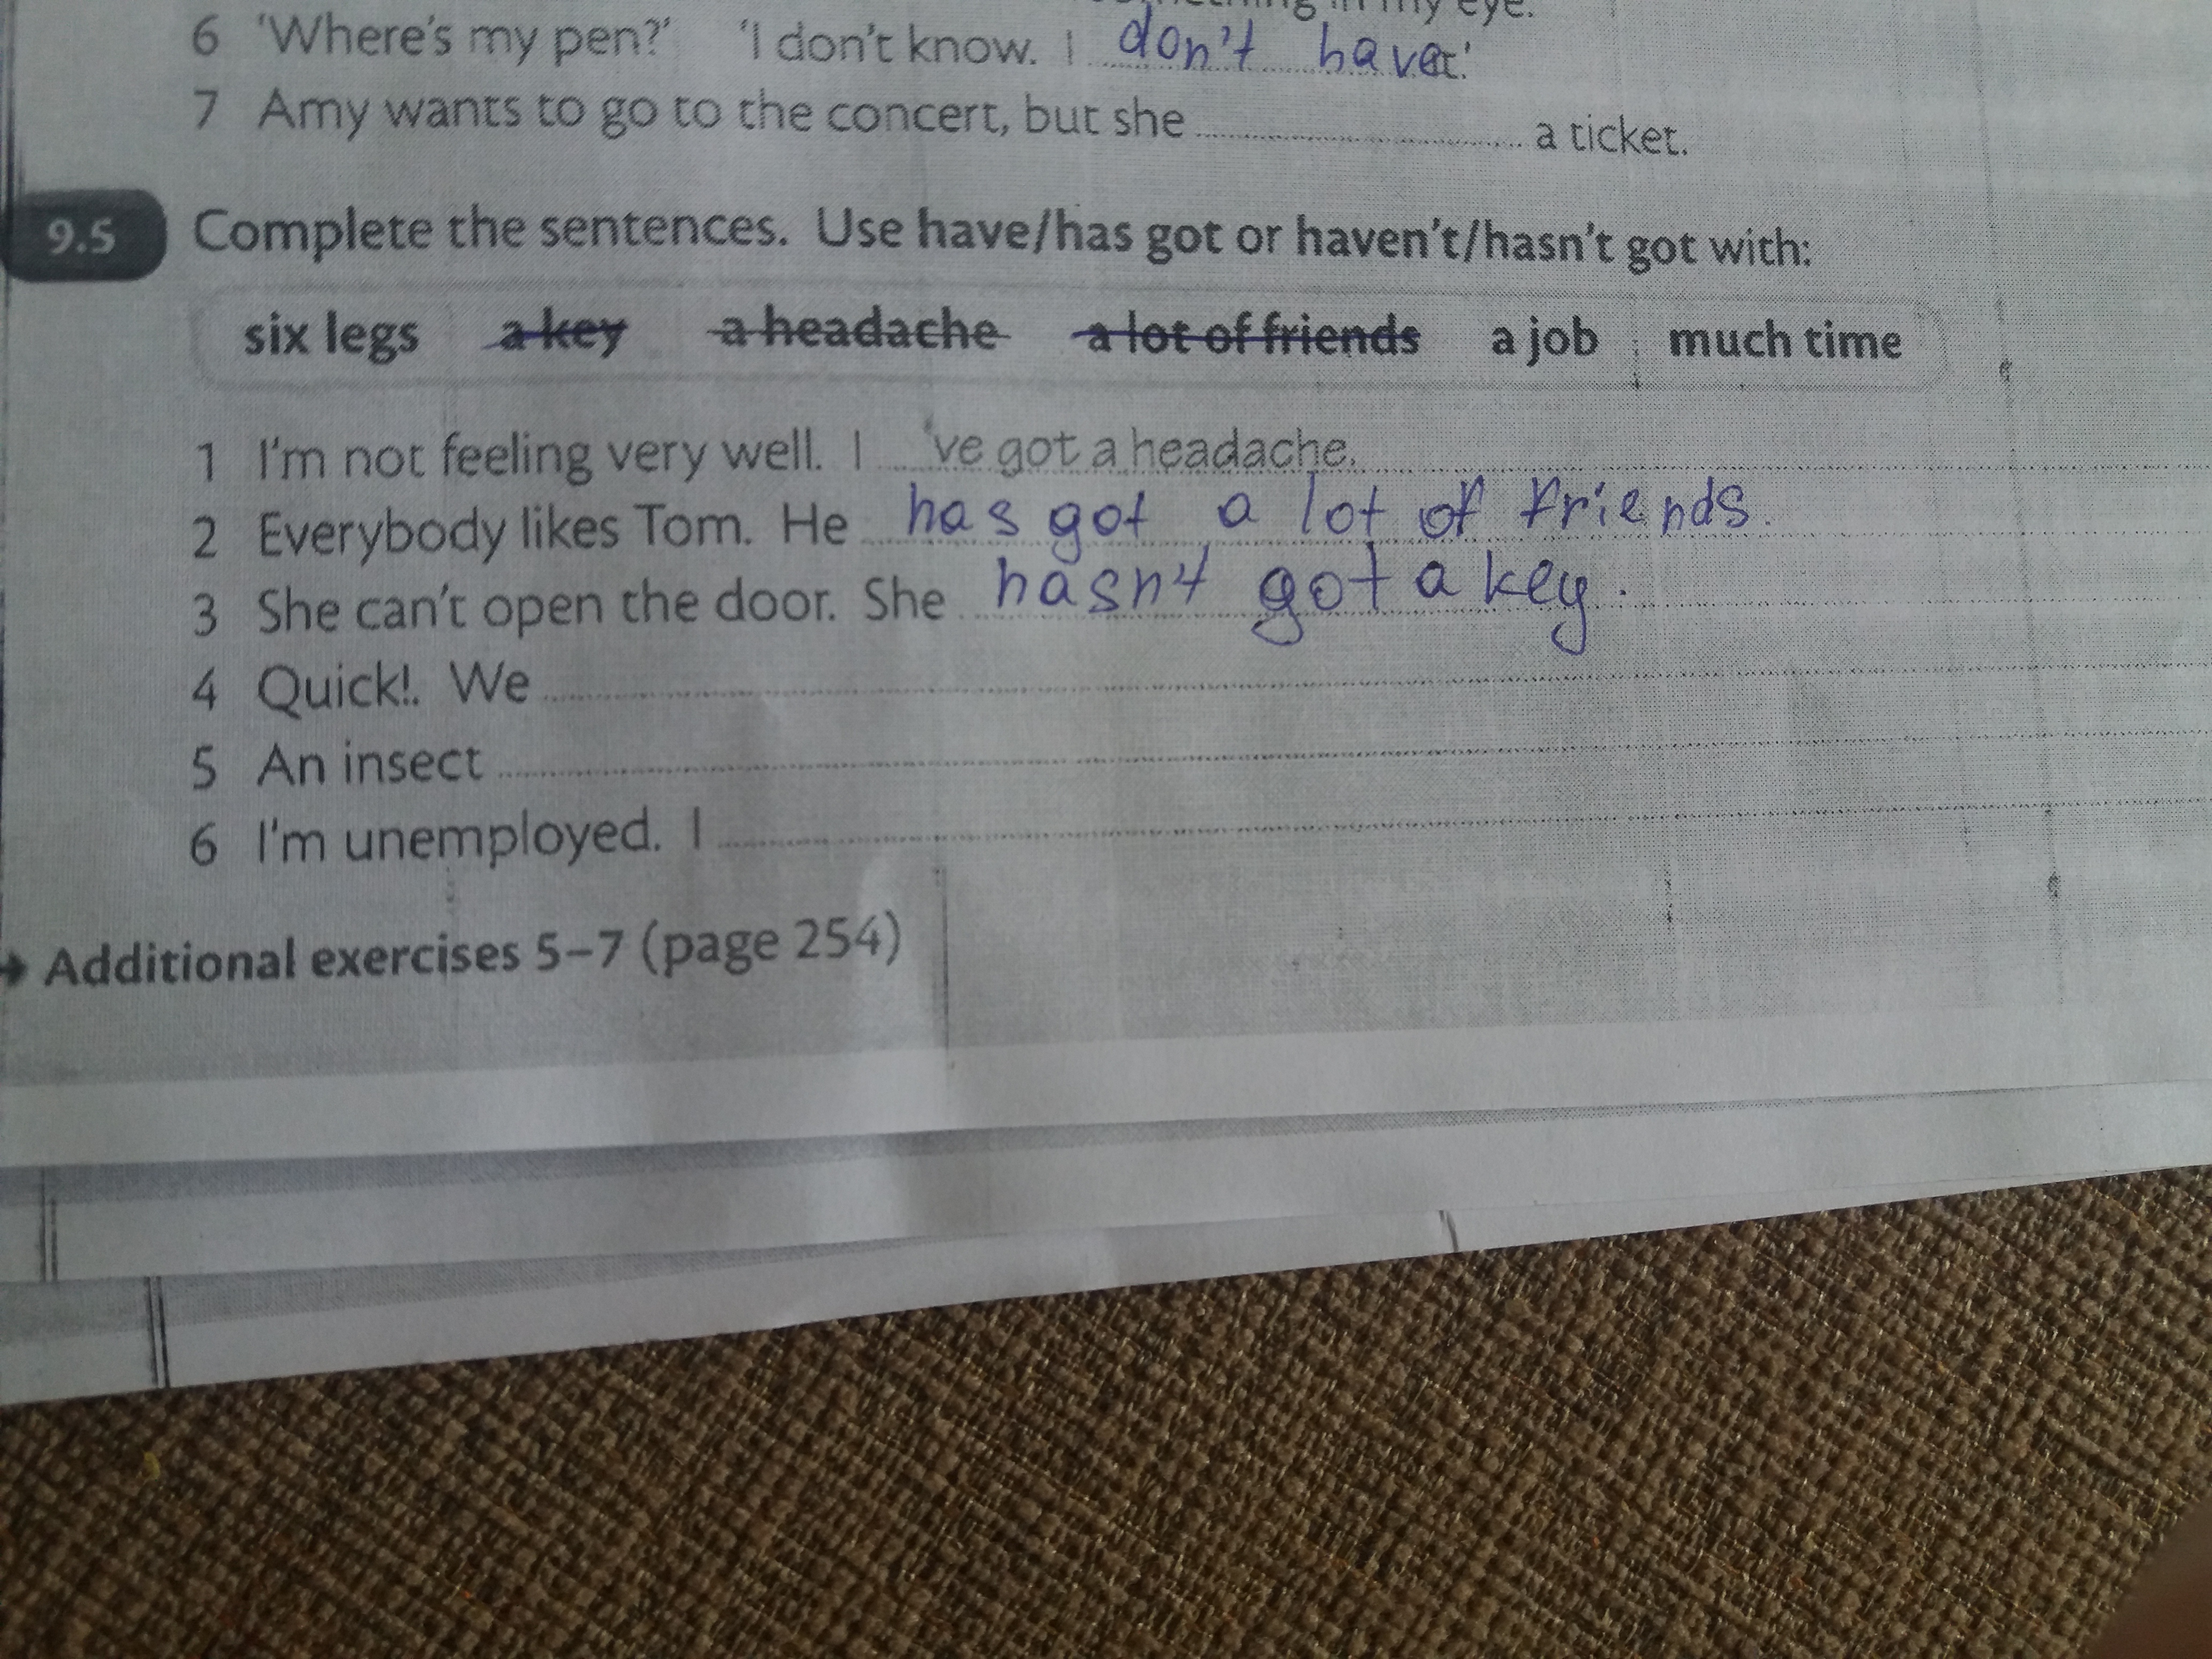 in my eye.
6 'Where's my pen?' 'I don't know. I don't have it.'
7 Amy wants to go to the concert, but she ........ a ticket.
9.5 Complete the sentences. Use have/has got or haven't/hasn't got with:
six legs a key a headache a lot of friends a job much time
1 I'm not feeling very well. I 've got a headache.
2 Everybody likes Tom. He has got a lot of friends.
3 She can't open the door. She hasn't got a key.
4 Quick!. We ........
5 An insect ........
6 I'm unemployed. I ........
→ Additional exercises 5–7 (page 254)